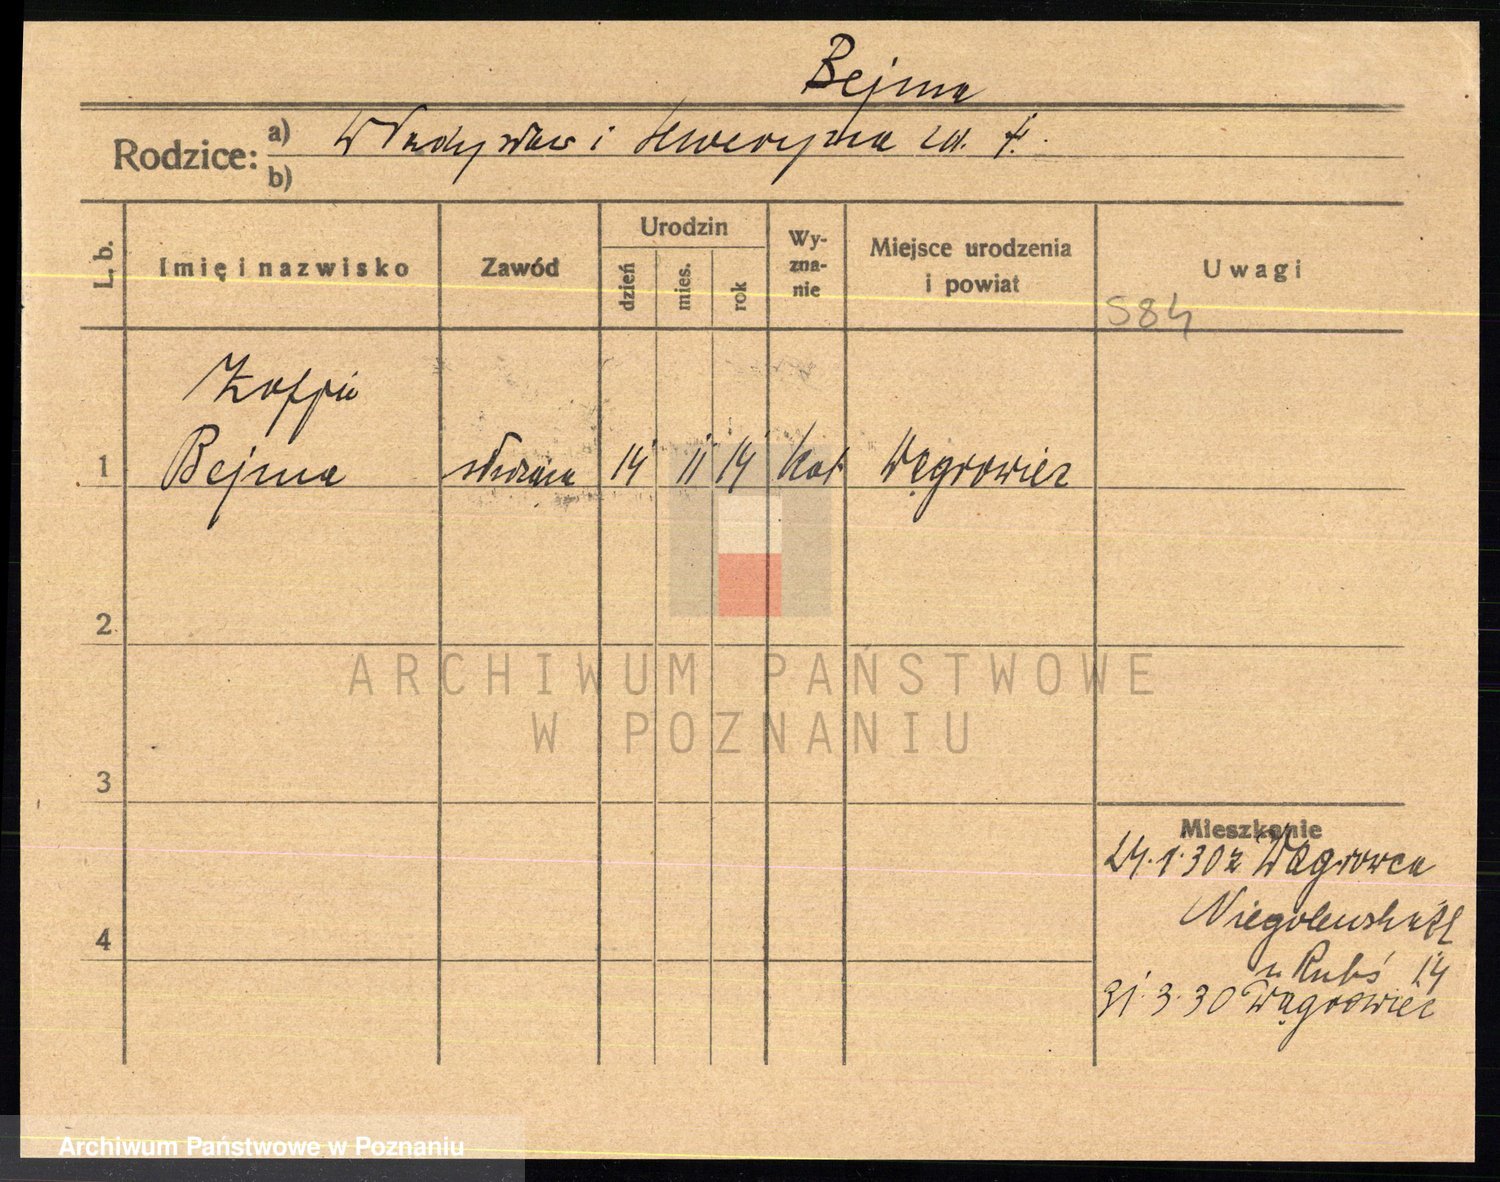 Bejma
Rodzice: a) Władysław i Seweryna zd. F.
b)
L. b.
Imię i nazwisko
Zawód
Urodzin
dzień
mies.
rok
Wy-
zna-
nie
Miejsce urodzenia
i powiat
Uwagi
584
Zoffia
1 Bejma służąca 14 11 14 kat Wągrowiec
2
3
4
Mieszkanie
24.1.30 z Wągrowca
14
31.3.30 Wągrowiec
ARCHIWUM PAŃSTWOWE
W POZNANIU
Archiwum Państwowe w Poznaniu